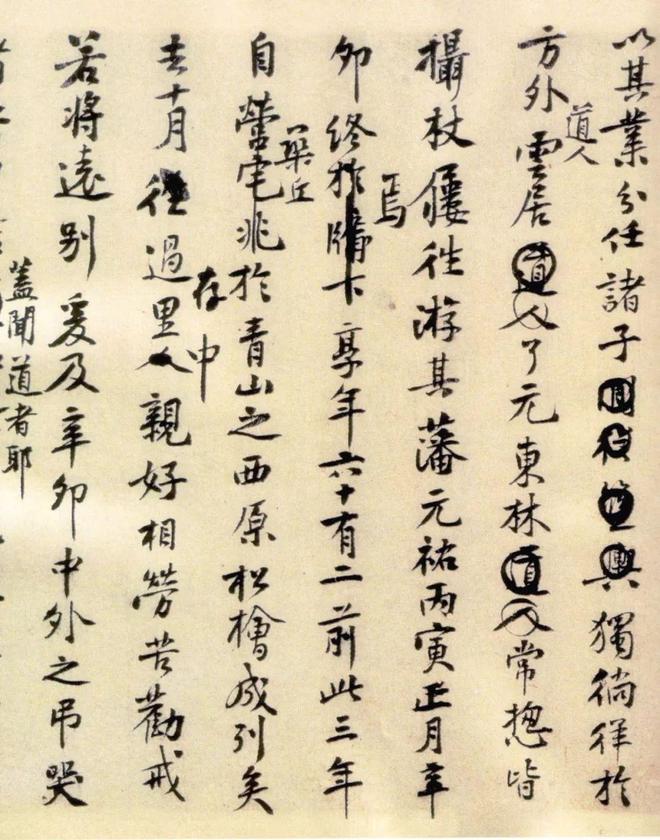 以其業分任諸子與獨徜徉於
道人
方外雲居道人了元東林道人常摠皆
攝杖屨往游其藩元祐丙寅正月辛
焉
卯終於牖下享年六十有二前此三年
築丘
自營宅兆於青山之西原松檜成列矣
存中
去十月往過里人親好相勞苦勸戒
若將遠別爰及辛卯中外之弔哭
蓋聞道者耶